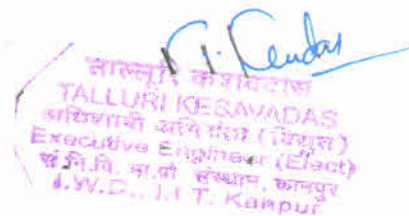 ताल्लुरि केशवदास
TALLURI KESAVADAS
अधिशासी अभियंता (विद्युत)
Executive Engineer (Elect)
सं.नि.वि. भा.प्रौ. संस्थान, कानपुर
I.W.D., I.I T. Kanpur